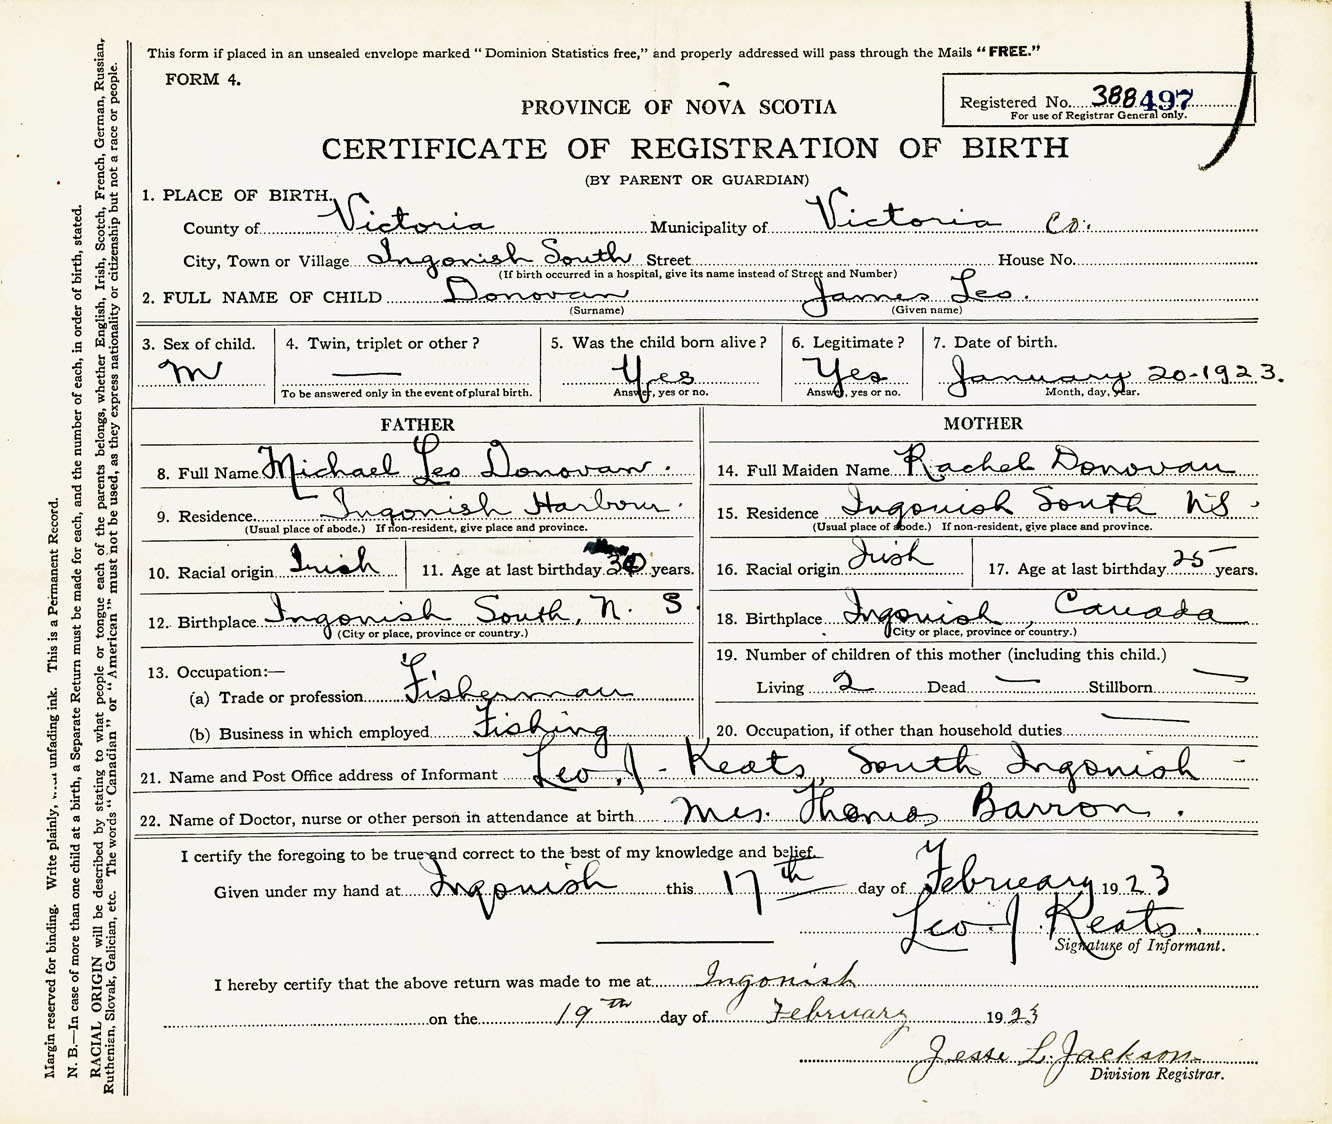 This form if placed in an unsealed envelope marked "Dominion Statistics free," and properly addressed will pass through the Mails "FREE."
FORM 4.
Registered No. 388497
For use of Registrar General only.
PROVINCE OF NOVA SCOTIA
CERTIFICATE OF REGISTRATION OF BIRTH
(BY PARENT OR GUARDIAN)
1. PLACE OF BIRTH.
County of Victoria Municipality of Victoria Co.
City, Town or Village Ingonish South Street House No.
(If birth occurred in a hospital, give its name instead of Street and Number)
2. FULL NAME OF CHILD Donovan James Leo.
(Surname) (Given name)
3. Sex of child. 4. Twin, triplet or other? 5. Was the child born alive? 6. Legitimate? 7. Date of birth.
M — Yes Yes January 20-1923.
To be answered only in the event of plural birth. Answer, yes or no. Answer, yes or no. Month, day, year.
FATHER
8. Full Name Michael Leo Donovan.
9. Residence Ingonish Harbour.
(Usual place of abode.) If non-resident, give place and province.
10. Racial origin Irish 11. Age at last birthday 30 years.
12. Birthplace Ingonish South, N. S
(City or place, province or country.)
13. Occupation:—
(a) Trade or profession Fisherman
(b) Business in which employed Fishing
MOTHER
14. Full Maiden Name Rachel Donovan
15. Residence Ingonish South NS.
(Usual place of abode.) If non-resident, give place and province.
16. Racial origin Irish 17. Age at last birthday 25 years.
18. Birthplace Ingonish, Canada
(City or place, province or country.)
19. Number of children of this mother (including this child.)
Living 2 Dead — Stillborn —
20. Occupation, if other than household duties —
21. Name and Post Office address of Informant Leo J. Keats, South Ingonish -
22. Name of Doctor, nurse or other person in attendance at birth Mrs. Thomas Barron.
I certify the foregoing to be true and correct to the best of my knowledge and belief.
Given under my hand at Ingonish this 17th day of February 1923
Leo J. Keats.
Signature of Informant.
I hereby certify that the above return was made to me at Ingonish
on the 19th day of February 1923
Jesse L. Jackson.
Division Registrar.
Margin reserved for binding. Write plainly, unfading ink. This is a Permanent Record.
N. B.—In case of more than one child at a birth, a Separate Return must be made for each, and the number of each, in order of birth, stated.
RACIAL ORIGIN will be described by stating to what people or tongue each of the parents belongs, whether English, Irish, Scotch, French, German, Russian,
Ruthenian, Slovak, Galician, etc. The words "Canadian" or "American" must not be used, as they express nationality or citizenship but not a race or people.